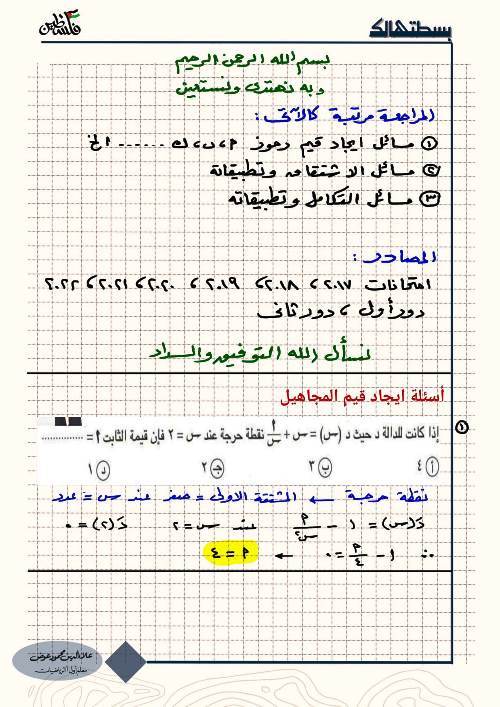 فلسطين
بسطتهالك
بسم الله الرحمن الرحيم
وبه نهتدى ونستعين
المراجعة مرتبة كالآتى :
① مسائل ايجاد قيم رموز م ، ن ، ك ...... الخ
② مسائل الاشتقاق وتطبيقاته
③ مسائل التكامل وتطبيقاته
المصادر :
امتحانات ٢٠١٧ ، ٢٠١٨ ، ٢٠١٩ ، ٢٠٢٠ ، ٢٠٢١ ، ٢٠٢٢
دور أول ، دور ثانى
نسأل الله التوفيق والسداد
أسئلة ايجاد قيم المجاهيل
① إذا كانت للدالة د حيث د (س) = س + أ/س نقطة حرجة عند س = ٢ فإن قيمة الثابت أ = ..............
أ ٤ ب ٣ ج ٢ د ١
نقطة حرجة ← المشتقة الاولى = صفر عند س = عدد
دَ(س) = ١ − م/س٢ عند س = ٢ دَ(٢) = ٠
∴ ١ − م/٤ = ٠ ← م = ٤
علاء الدين محمود عوض
معلم أول الرياضيات